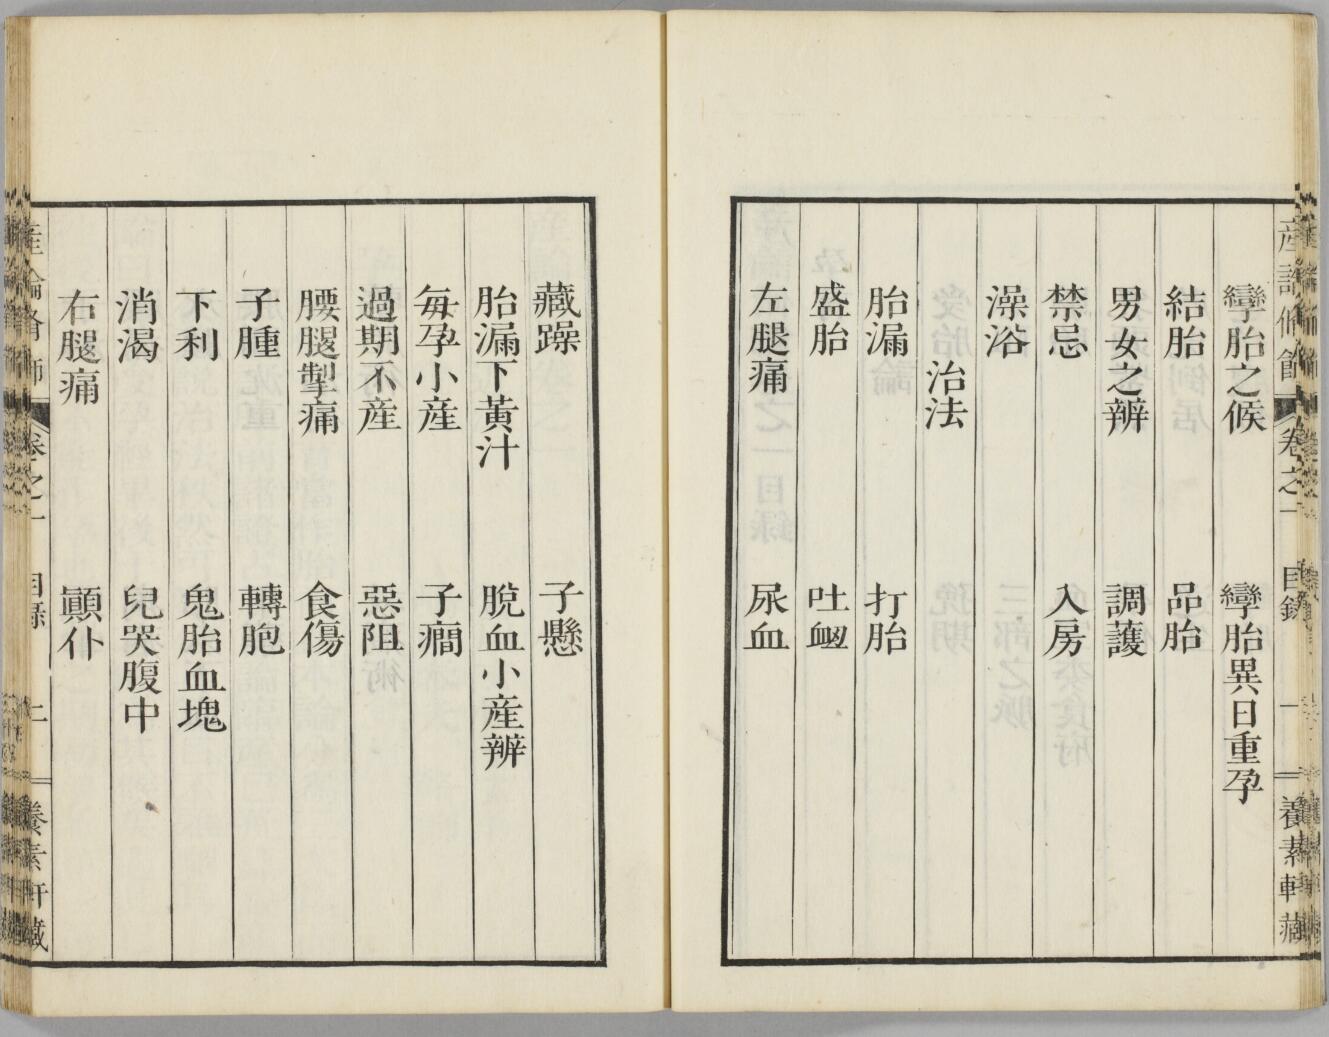 孿胎之候 孿胎異日重孕
結胎 品胎
男女之辨 調護
禁忌 入房
澡浴
治法
胎漏 打胎
盛胎 吐衄
左腿痛 尿血
藏躁 子懸
胎漏下黃汁 脫血小産辨
每孕小産 子癎
過期不産 惡阻
腰腿掣痛 食傷
子腫 轉胞
下利 鬼胎血塊
消渴 兒哭腹中
右腿痛 顚仆
卷之一 目錄 二 養素軒藏